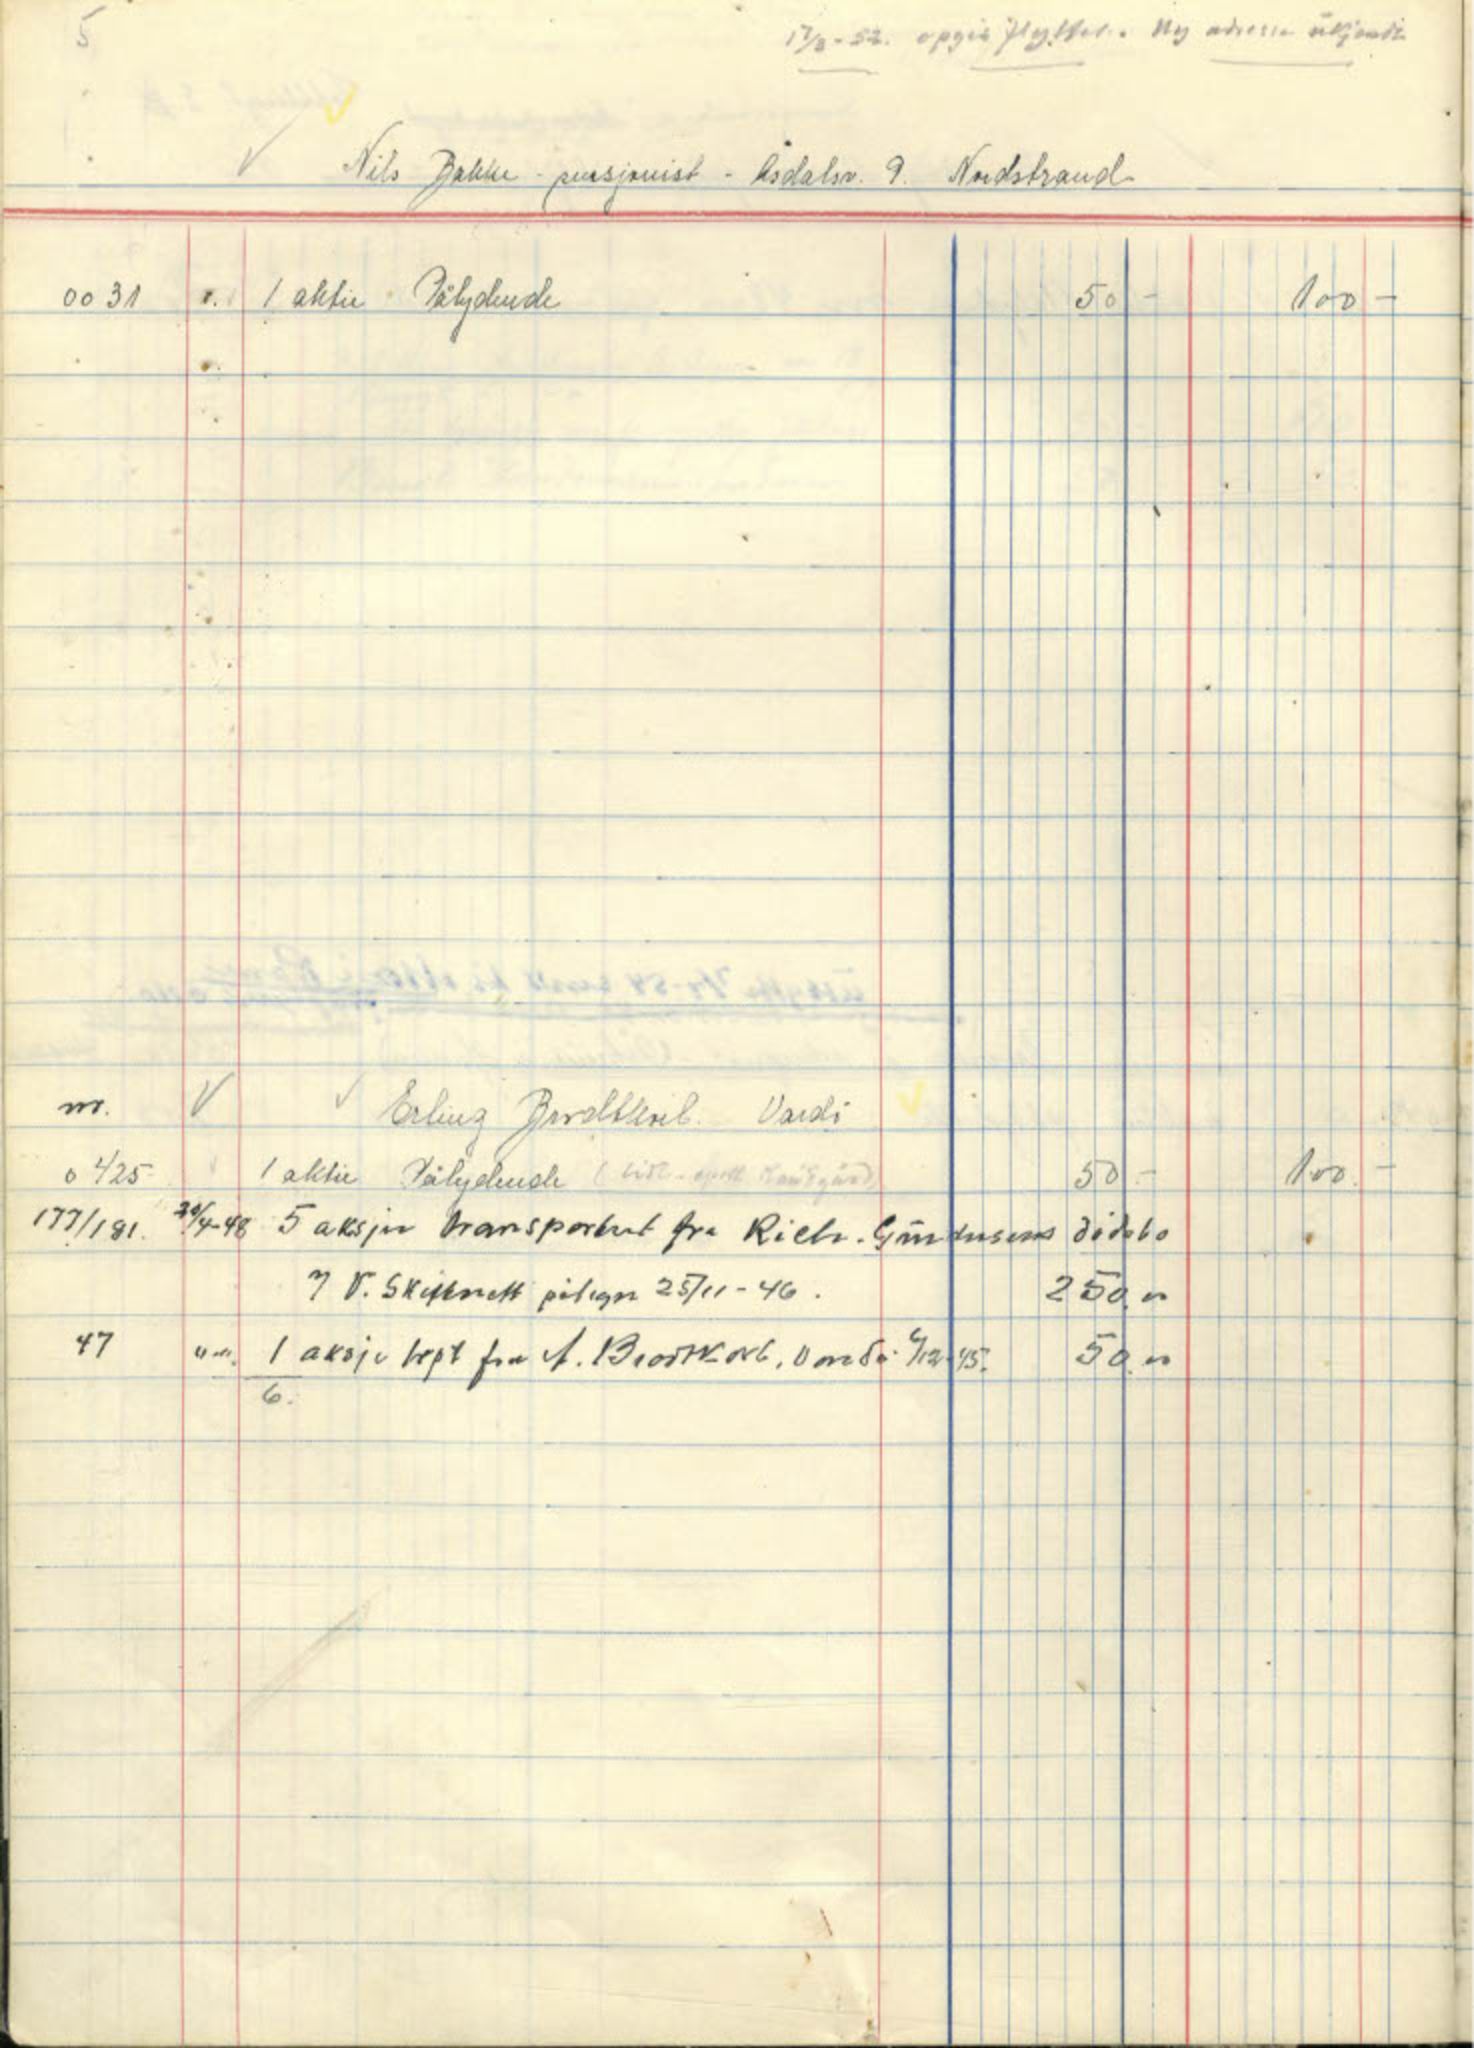 5
17/3-52. opgis flyttet. Ny adresse ukjendt
Nils Bakke - pensjonist - Åsdalsv. 9. Nordstrand
0031 1 aktie Pålydende 50- 100-
nr. Erling Brodtkorb. Vardö
0425 1 aktie Pålydende ( 50.- 100.-
177/181. 30/4-48 5 aksjer transportert fra Rich. Gundersens dödsbo
V. Skifterett påtegn 25/11-46. 250.00
47 "-". 1 aksje trpt fra A. Brodtkorb, Vardö 6/12-45. 50.00
6.